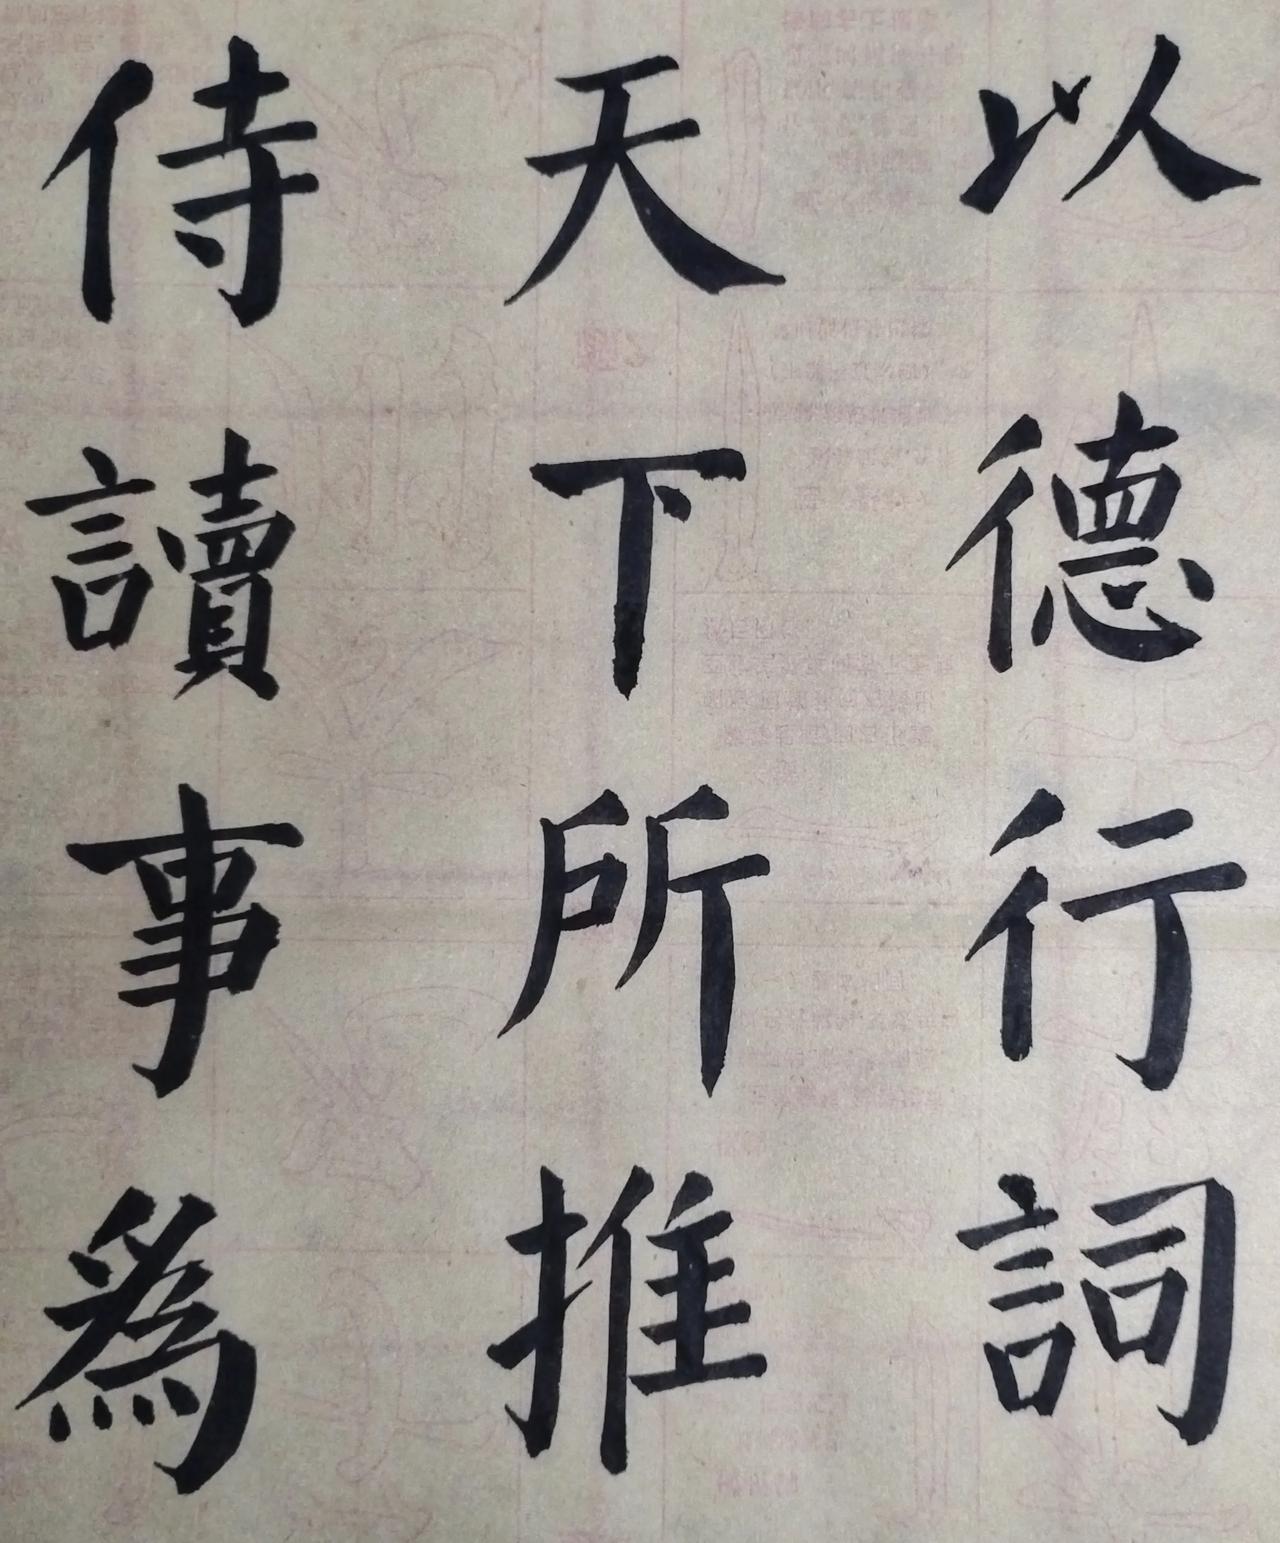 以德行詞
天下所推
侍讀事爲